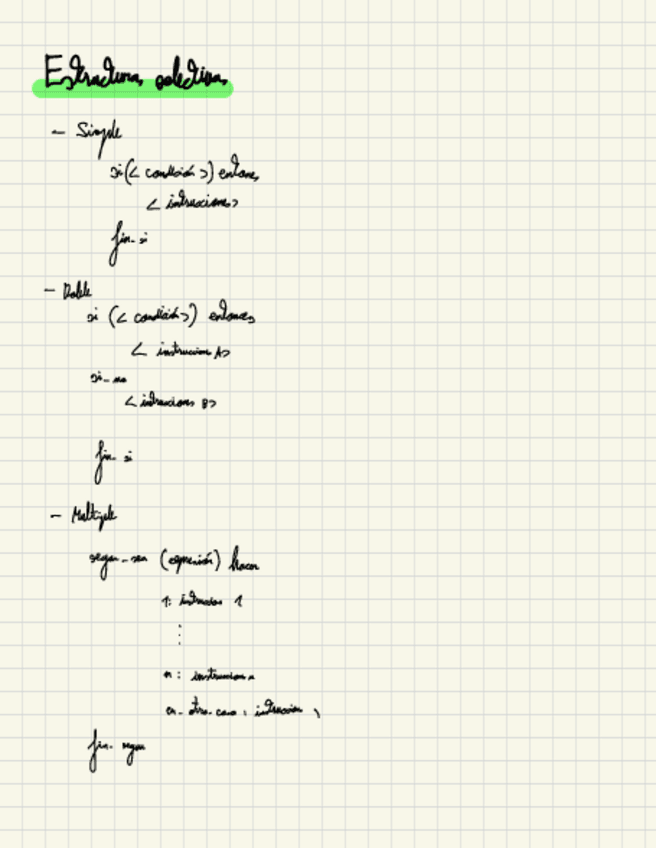 Estructura selectiva
- Simple
si (< condición >) entonces
< instrucciones >
fin-si
- Doble
si (< condición >) entonces
< instruccion A>
si-no
< intruccions B>
fin si
- Multiple
segun-sea (expresión) hacer
1: intruccion 1
⋮
n: instruccion n
en-otro-caso: intruccion
fin-segun